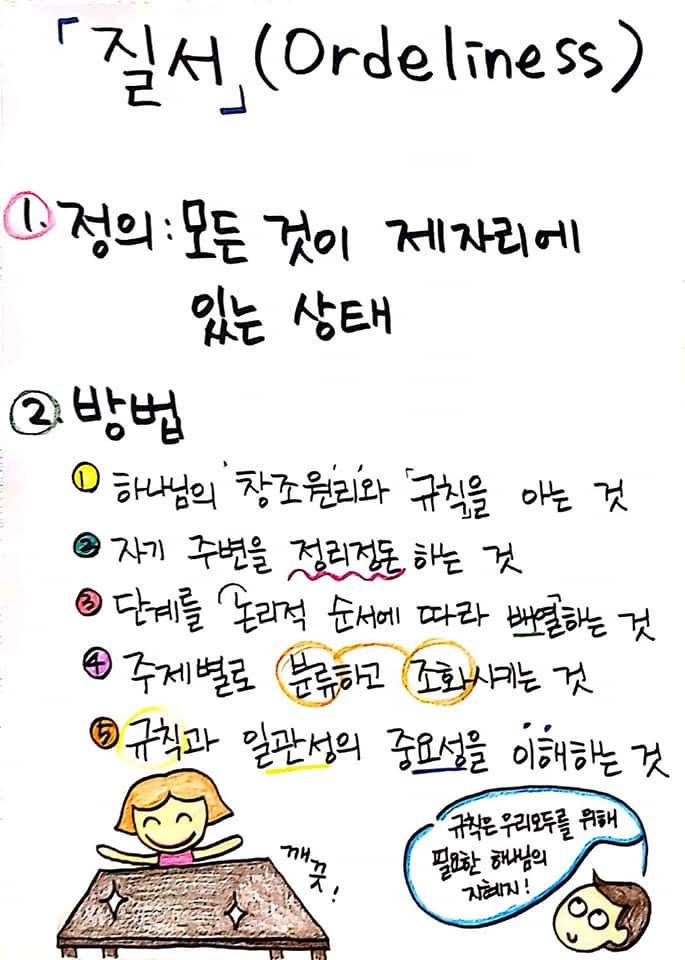 「질서」(Ordeliness)
1. 정의: 모든 것이 제자리에
있는 상태
2. 방법
1 하나님의 '창조원리'와 「규칙」을 아는 것
2 자기 주변을 정리정돈하는 것
3 단계를 논리적 순서에 따라 배열하는 것
4 주제별로 분류하고 조화시키는 것
5 규칙과 일관성의 중요성을 이해하는 것
깨끗!
규칙은 우리모두를 위해
필요한 하나님의
지혜지!